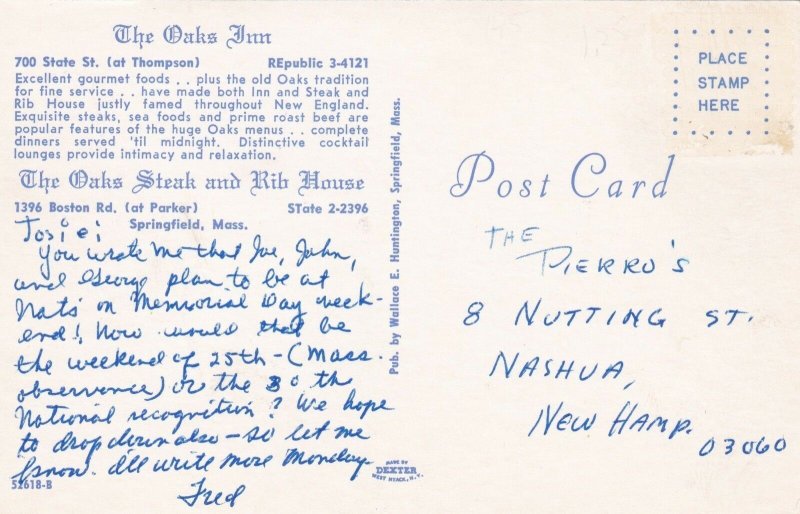 The Oaks Inn
700 State St. (at Thompson) REpublic 3-4121
Excellent gourmet foods . . plus the old Oaks tradition
for fine service . . have made both Inn and Steak and
Rib House justly famed throughout New England.
Exquisite steaks, sea foods and prime roast beef are
popular features of the huge Oaks menus . . complete
dinners served 'til midnight. Distinctive cocktail
lounges provide intimacy and relaxation.
The Oaks Steak and Rib House
1396 Boston Rd. (at Parker) STate 2-2396
Springfield, Mass.
Josie;
You wrote me that Joe, John,
and George plan to be at
Nats' on Memorial Day week-
end! Now would that be
the weekend of 25th - (Mass.
observance) or the 30th
National recognition? We hope
to drop down also - so let me
know. I'll write more Monday.
Fred
52618-B
Pub. by Wallace E. Huntington, Springfield, Mass.
MADE BY
DEXTER
WEST NYACK, N.Y.
PLACE
STAMP
HERE
Post Card
THE
PIERRO'S
8 NUTTING ST.
NASHUA,
NEW HAMP.
03060